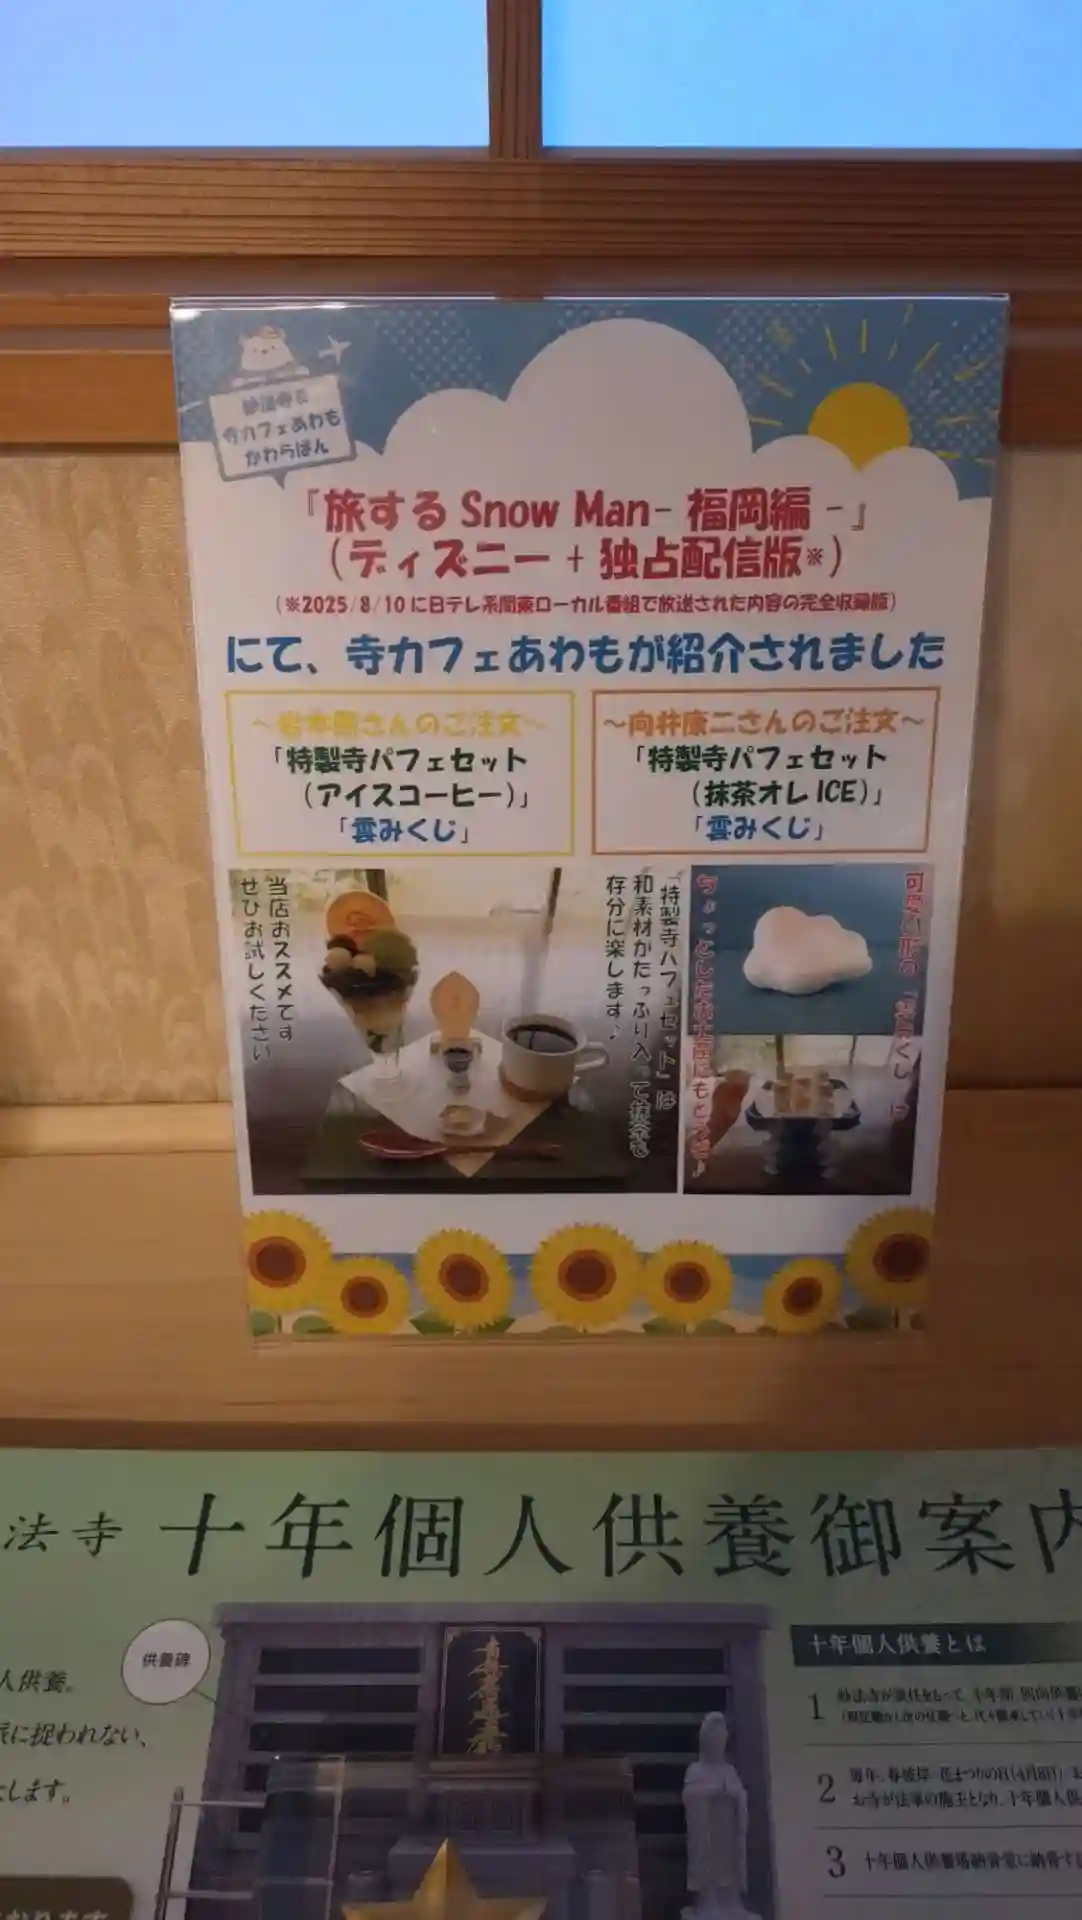 妙法寺&
寺カフェあわも
かわらばん
『旅する Snow Man- 福岡編 -』
(ディズニー + 独占配信版※)
(※2025/8/10 に日テレ系関東ローカル番組で放送された内容の完全収録版)
にて、寺カフェあわもが紹介されました
～岩本照さんのご注文～
「特製寺パフェセット
(アイスコーヒー)」
「雲みくじ」
～向井康二さんのご注文～
「特製寺パフェセット
(抹茶オレ ICE)」
「雲みくじ」
当店おススメです
ぜひお試しください
「特製寺パフェセット」は
和素材がたっぷり入って抹茶も
存分に楽します♪
可愛い形の「雲みくじ」は
ちょっとしたお土産にもどうぞ♪
法寺 十年個人供養御案内
供養碑
人供養。
派に捉われない、
たします。
十年個人供養とは
1
2 毎年、春彼岸・花まつりの日(4月8日)
お寺が法事の施主となり、十年個人供
3 十年個人供養塔納骨室に納骨する